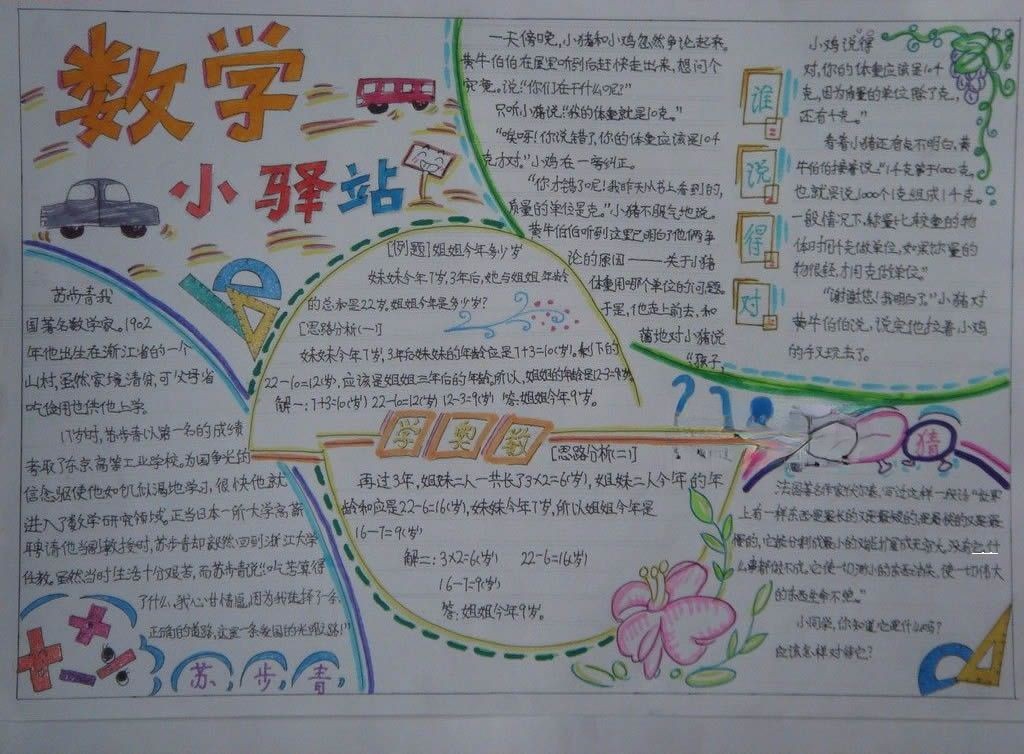 数学
小驿站
苏步青我
国著名数学家。1902
年他出生在浙江省的一个
山村，虽然家境清贫，可父母省
吃俭用也供他上学。
17岁时，苏步青以第一名的成绩
考取了东京高等工业学校。为国争光的
信念驱使他如饥似渴地学习，很快他就
进入了数学研究领域。正当日本一所大学高薪
聘请他当副教授时，苏步青却毅然回到浙江大学
任教。虽然当时生活十分艰苦，而苏步青说：“吃苦算得
了什么，我心甘情愿，因为我选择了一条
正确的道路，这是一条爱国的光明之路！”
苏步青
[例题]姐姐今年多少岁
妹妹今年7岁，3年后，她与姐姐年龄
的总和是22岁。姐姐今年是多少岁？
[思路分析(一)]
妹妹今年7岁，3年后妹妹的年龄应是7+3=10(岁)。剩下的
22-10=12(岁)，应该是姐姐三年后的年龄。所以，姐姐的年龄是12-3=9岁。
解一：7+3=10(岁) 22-10=12(岁) 12-3=9(岁) 答：姐姐今年9岁。
学奥数
[思路分析(二)]
再过3年，姐妹二人一共长了3×2=6(岁)，姐妹二人今年的年
龄和应是22-6=16(岁)，妹妹今年7岁，所以姐姐今年是
16-7=9(岁)
解二：3×2=6(岁) 22-6=16(岁)
16-7=9(岁)
答：姐姐今年9岁。
一天傍晚，小猪和小鸡忽然争论起来。
黄牛伯伯在屋里听到后赶快走出来，想问个
究竟。说：“你们在干什么呢？”
只听小猪说：“我的体重就是10克。”
“唉呀！你说错了，你的体重应该是10千
克才对。”小鸡在一旁纠正。
“你才错了呢！我昨天从书上看到的，
质量的单位是克。”小猪不服气地说。
黄牛伯伯听到这里已明白了他俩争
论的原因——关于小猪
体重用哪个单位的问题。
于是，他走上前去，和
蔼地对小猪说
“孩子，
谁说得对
小鸡说得
对，你的体重应该是10千
克，因为质量的单位除了克，
还有千克。”
看着小猪还有点不明白，黄
牛伯伯接着说：“1千克等于1000克，
也就是说1000个1克组成1千克。
一般情况下，称量比较重的物
体时用千克做单位，如果称量的
物很轻，才用克做单位。”
“谢谢您！我明白了。”小猪对
黄牛伯伯说，说完他拉着小鸡
的手又玩去了。
猜
法国著名作家伏尔泰，写过这样一段话：“世界
上有一样东西是最长的又是最短的，是最快的又是最
慢的，它能分割成最小的又能扩富成无穷大。没有它，什
么事都做不成。它使一切渺小的东西消失，使一切伟大
的东西生命不绝。”
小同学，你知道它是什么吗？
应该怎样对待它？